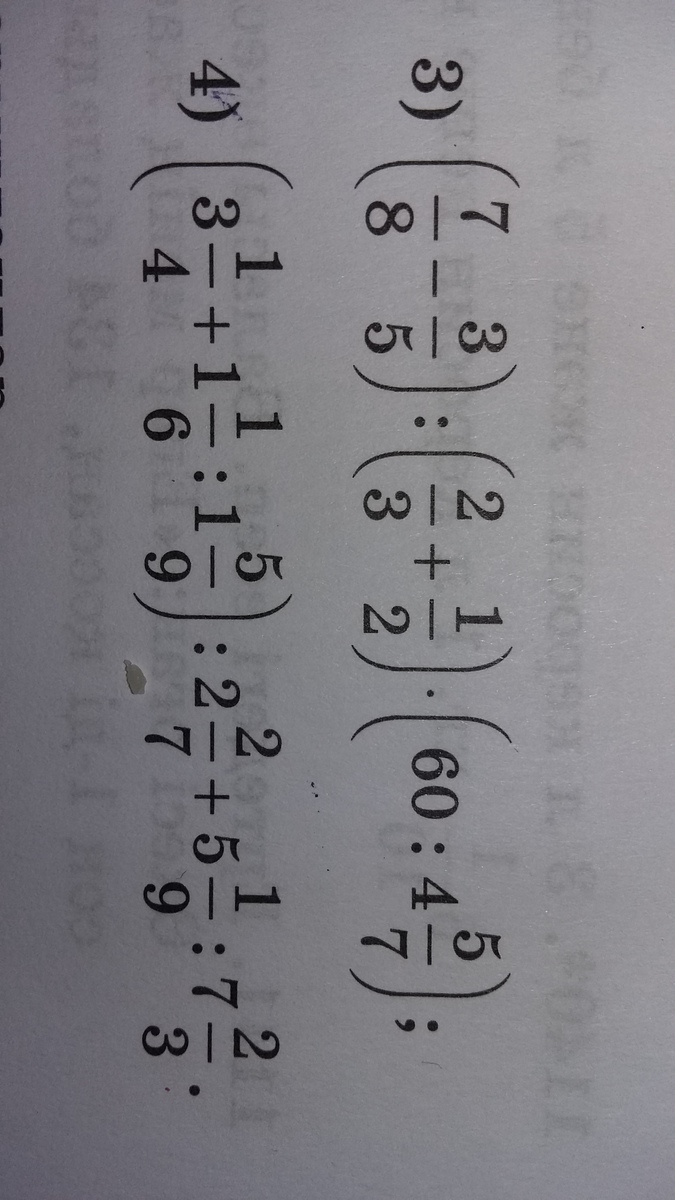 3) (7/8 − 3/5) : (2/3 + 1/2) · (60 : 4 5/7);
4) (3 1/4 + 1 1/6 : 1 5/9) : 2 2/7 + 5 1/9 : 7 2/3.